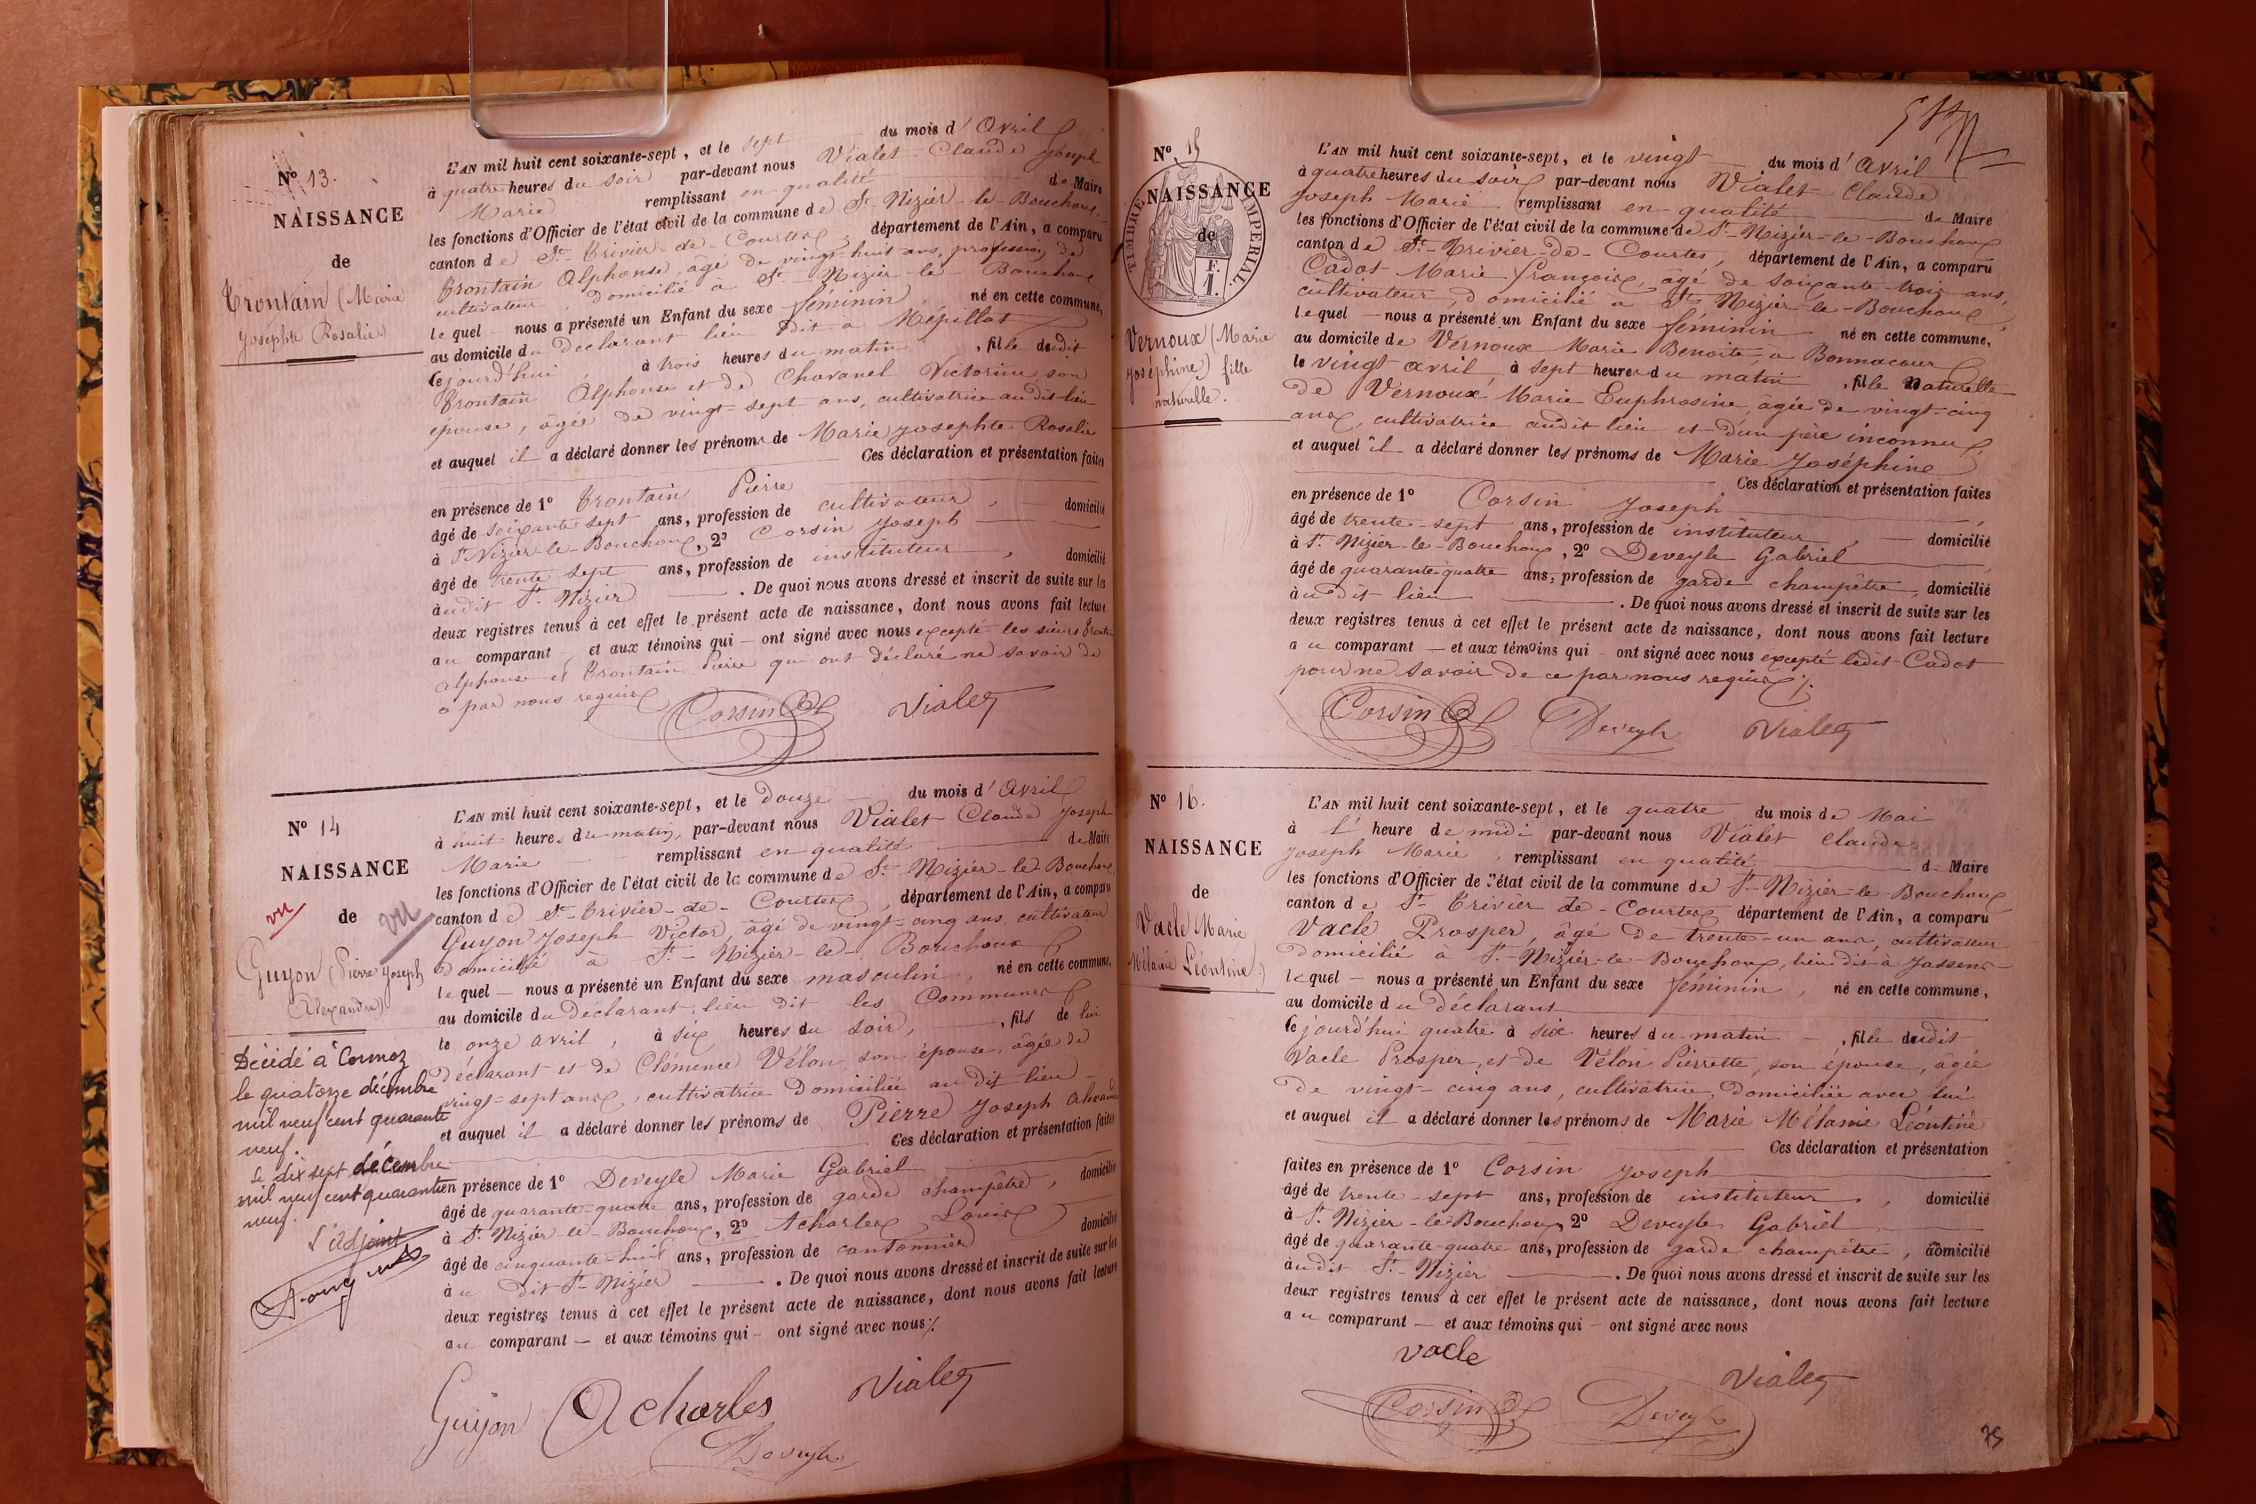 N° 13.
NAISSANCE
de
Trontain (Marie
Josephte Rosalie)
L'AN mil huit cent soixante-sept, et le sept du mois d'Avril
à quatre heures du soir par-devant nous Vialet Claude Joseph
Marie remplissant en qualité de Maire
les fonctions d'Officier de l'état civil de la commune de St Nizier-le-Bouchoux
canton de St-Trivier-de-Courtes, département de l'Ain, a comparu
Trontain Alphonse, âgé de vingt-huit ans, profession de
cultivateur domicilié à St Nizier-le-Bouchoux
lequel nous a présenté un Enfant du sexe féminin, né en cette commune,
au domicile du déclarant lieu dit à Mépillat
cejourd'hui à trois heures du matin, fille dudit
Trontain Alphonse et de Chavanel Victorine son
épouse, âgée de vingt-sept ans, cultivatrice audit lieu
et auquel il a déclaré donner les prénoms de Marie Josephte Rosalie
Ces déclaration et présentation faites
en présence de 1° Trontain Pierre
âgé de soixante sept ans, profession de cultivateur, domicilié
à St Nizier-le-Bouchoux, 2° Corsin Joseph
âgé de trente sept ans, profession de instituteur, domicilié
audit St Nizier. De quoi nous avons dressé et inscrit de suite sur les
deux registres tenus à cet effet le présent acte de naissance, dont nous avons fait lecture
au comparant et aux témoins qui ont signé avec nous excepté les sieurs Trontain
alphonse et Trontain Pierre qui ont déclaré ne savoir de
ce par nous requis
Corsin Vialet
N° 14
NAISSANCE
de
vu
vu
Guyon (Pierre Joseph
Alexandre)
Décédé à Cormoz
le quatorze décembre
mil neuf cent quarante
neuf.
Le dix sept décembre
mil neuf cent quarante
neuf.
L'adjoint
L'AN mil huit cent soixante-sept, et le douze du mois d'Avril
à huit heures du matin, par-devant nous Vialet Claude Joseph
Marie remplissant en qualité de Maire
les fonctions d'Officier de l'état civil de la commune de St-Nizier-le-Bouchoux
canton de St-Trivier-de-Courtes, département de l'Ain, a comparu
Guyon Joseph Victor, âgé de vingt-cinq ans, cultivateur
domicilié à St-Nizier-le-Bouchoux
lequel nous a présenté un Enfant du sexe masculin, né en cette commune,
au domicile du déclarant, lieu dit les Communes
le onze avril, à six heures du soir, fils de lui
déclarant et de Clémence Vélon, son épouse, âgée de
vingt-sept ans, cultivatrice domiciliée audit lieu
et auquel il a déclaré donner les prénoms de Pierre Joseph Alexandre
Ces déclaration et présentation faites
en présence de 1° Deveyle Marie Gabriel
âgé de quarante-quatre ans, profession de garde champêtre, domicilié
à St Nizier-le-Bouchoux, 2° Acharles Louis
âgé de cinquante-huit ans, profession de cantonnier domicilié
au dit St-Nizier. De quoi nous avons dressé et inscrit de suite sur les
deux registres tenus à cet effet le présent acte de naissance, dont nous avons fait lecture
au comparant et aux témoins qui ont signé avec nous ./.
Guyon Acharles Vialet
Deveyle
N° 15
NAISSANCE
de
TIMBRE IMPERIAL.
F.
1.
Vernoux (Marie
Joséphine) fille
naturelle.
L'AN mil huit cent soixante-sept, et le vingt du mois d'Avril
à quatre heures du soir par-devant nous Vialet Claude
Joseph Marie remplissant en qualité de Maire
les fonctions d'Officier de l'état civil de la commune de St-Nizier-le-Bouchoux
canton de St-Trivier-de-Courtes, département de l'Ain, a comparu
Cadot Marie françois, âgé de soixante-trois ans,
cultivateur, domicilié à St Nizier-le-Bouchoux,
lequel nous a présenté un Enfant du sexe féminin né en cette commune,
au domicile de Vernoux Marie Benoite, à Bonnacour
le vingt avril, à sept heures du matin, fille naturelle
de Vernoux Marie Euphrosine, âgée de vingt-cinq
ans, cultivatrice audit lieu et d'un père inconnu,
et auquel il a déclaré donner les prénoms de Marie Joséphine
Ces déclaration et présentation faites
en présence de 1° Corsin Joseph
âgé de trente-sept ans, profession de instituteur, domicilié
à St Nizier-le-Bouchoux, 2° Deveyle Gabriel
âgé de quarante-quatre ans, profession de garde champêtre, domicilié
audit lieu. De quoi nous avons dressé et inscrit de suite sur les
deux registres tenus à cet effet le présent acte de naissance, dont nous avons fait lecture
au comparant et aux témoins qui ont signé avec nous excepté ledit Cadot
pour ne savoir de ce par nous requis ./.
Corsin Deveyle Vialet
N° 16.
NAISSANCE
de
Vacle (Marie
Mélanie Léontine)
L'AN mil huit cent soixante-sept, et le quatre du mois de Mai
à l' heure de midi par-devant nous Vialet Claude
Joseph Marie, remplissant en qualité de Maire
les fonctions d'Officier de l'état civil de la commune de St-Nizier-le-Bouchoux
canton de St Trivier de-Courtes département de l'Ain, a comparu
Vacle Prosper, âgé de trente-un ans, cultivateur
domicilié à St-Nizier-le-Bouchoux, lieu dit à Jassens
lequel nous a présenté un Enfant du sexe féminin, né en cette commune,
au domicile du déclarant
cejourd'hui quatre à six heures du matin, fille dudit
Vacle Prosper, et de Vélon Pierrette, son épouse, âgée
de vingt-cinq ans, cultivatrice, domiciliée avec lui
et auquel il a déclaré donner les prénoms de Marie Mélanie Léontine
Ces déclaration et présentation
faites en présence de 1° Corsin Joseph
âgé de trente-sept ans, profession de instituteur, domicilié
à St Nizier-le-Bouchoux, 2° Deveyle Gabriel
âgé de quarante-quatre ans, profession de garde champêtre, domicilié
audit St-Nizier. De quoi nous avons dressé et inscrit de suite sur les
deux registres tenus à cet effet le présent acte de naissance, dont nous avons fait lecture
au comparant et aux témoins qui ont signé avec nous
Vacle
Vialet
Corsin Deveyle
75